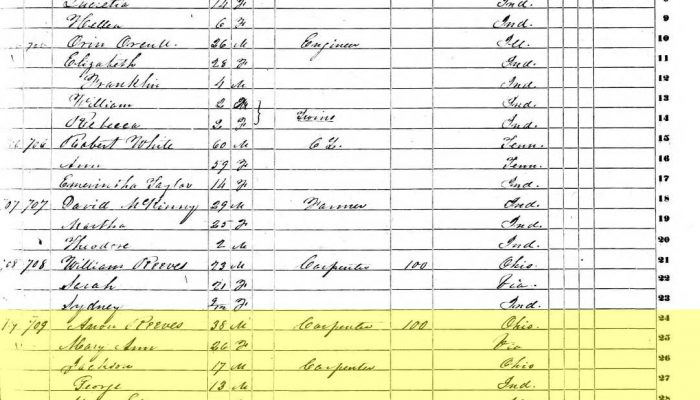 Lucretia 14 F Ind. 8
Hellen 6 F Ind. 9
Orin Orcutt 26 M Engineer Ill. 10
Elizabeth 28 F Ind. 11
Franklin 4 M Ind. 12
William 2 M Ind. 13
Rebecca 2 F Twins Ind. 14
706 Robert White 60 M Tenn. 15
Ann 59 F Tenn. 16
Emerintha Taylor 14 F Ind. 17
07 707 David McKinny 29 M Farmer Ind. 18
Martha 25 F Ind. 19
Theodore 2 M Ind. 20
08 708 William Reeves 23 M Carpenter 100 Ohio 21
Sarah 21 F Via. 22
Sydney F Ind. 23
709 Reeves 38 M Carpenter 100 Ohio. 24
Mary Ann 26 F Via 25
Jackson 17 M Carpenter Ohio 26
George 13 M Ind. 27
28